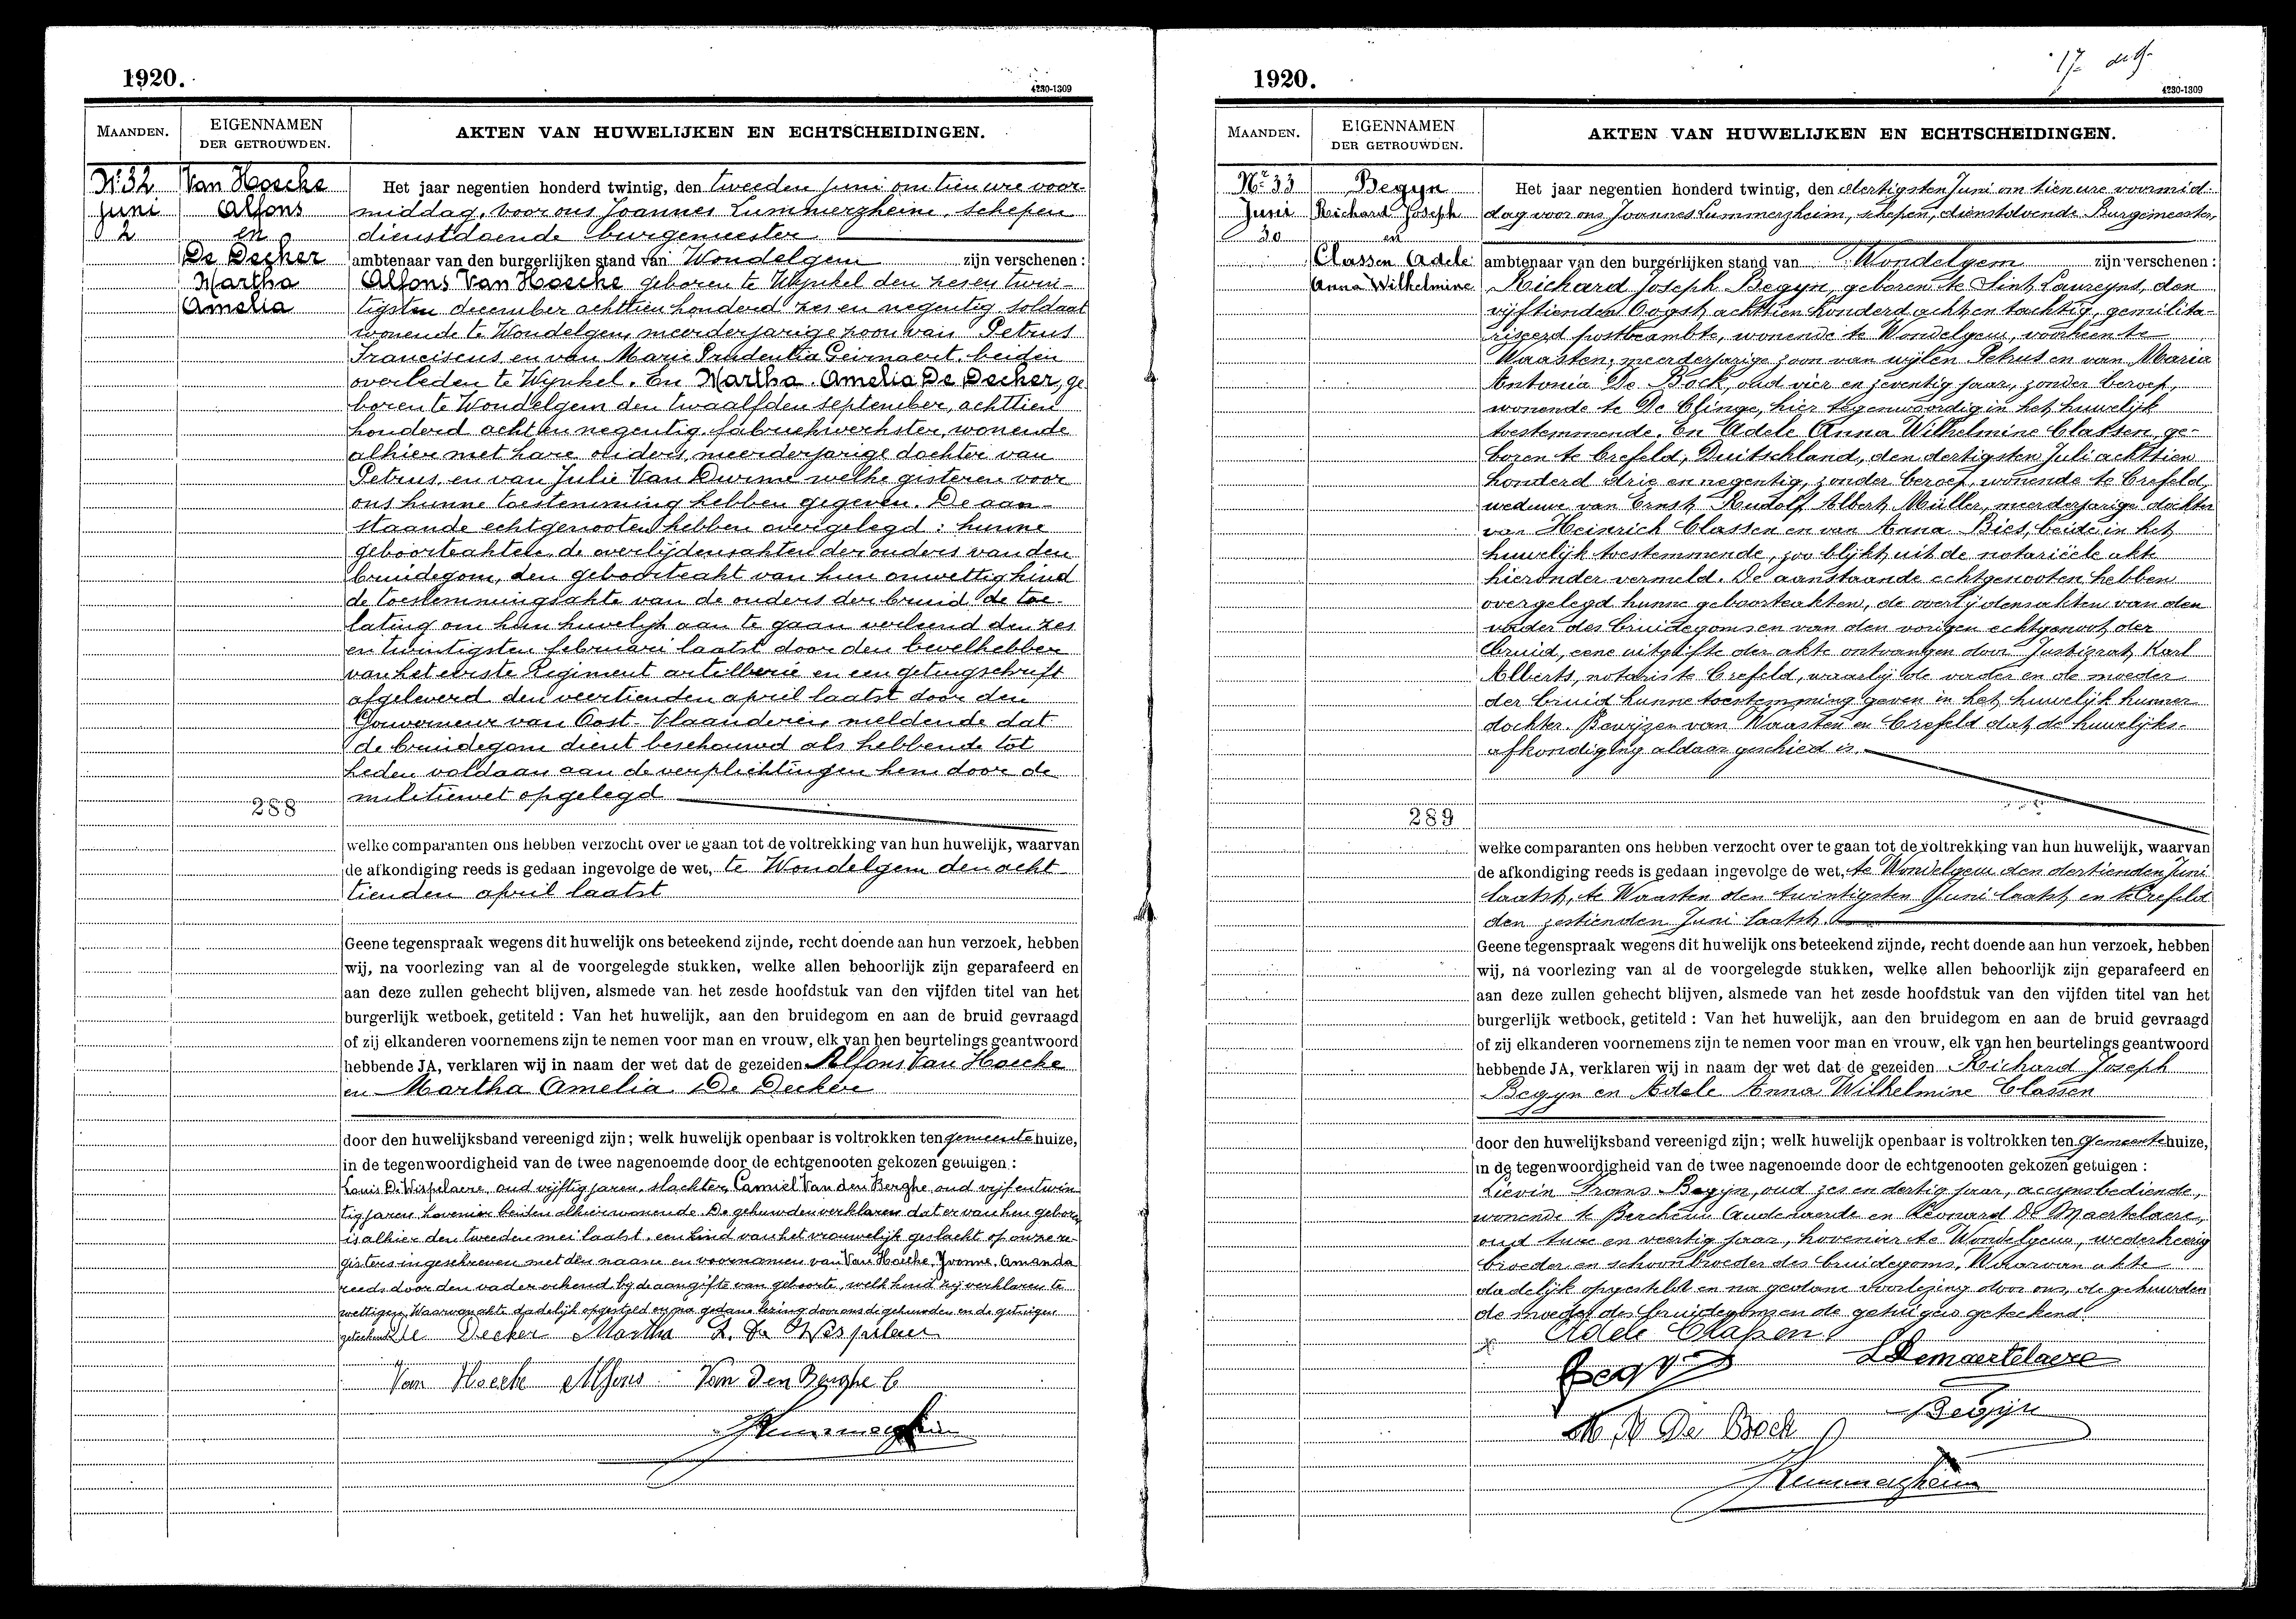 1920.
4230-1309
MAANDEN.
EIGENNAMEN
DER GETROUWDEN.
AKTEN VAN HUWELIJKEN EN ECHTSCHEIDINGEN.
Nr. 32
Juni
2
Van Hoecke
Alfons
en
De Decker
Martha
Amelia
288
Het jaar negentien honderd twintig, den tweeden juni om tien ure voor-
middag, voor ons Joannes Lummerzheim, schepen
dienstdoende burgemeester
ambtenaar van den burgerlijken stand van Wondelgem zijn verschenen :
Alfons Van Hoecke geboren te Wynkel den zes en twin-
tigsten december achttien honderd zes en negentig, soldaat
wonende te Wondelgem, meerderjarige zoon van Petrus
Franciscus en van Marie Prudentia Geirnaert, beiden
overleden te Wynkel. En Martha Amelia De Decker, ge
boren te Wondelgem den twaalfden september, achttien
honderd acht en negentig, fabriekwerkster, wonende
alhier met hare ouders, meerderjarige dochter van
Petrus en van Julie Van Durme welke gisteren voor
ons hunne toestemming hebben gegeven. De aan-
staande echtgenooten hebben overgelegd : hunne
geboorteakten, de overlijdensakten der ouders van den
bruidegom, den geboorteakt van hun onwettig kind
de toestemmingsakte van de ouders der bruid, de toe-
lating om hun huwelijk aan te gaan verleend den zes
en twintigsten februari laatst door den bevelhebber
van het eerste Regiment artillerie en een getuigschrift
afgeleverd den veertienden april laatst door den
Gouverneur van Oost-Vlaanderen, meldende dat
de bruidegom dient beschouwd als hebbende tot
heden voldaan aan de verplichtingen hem door de
militiewet opgelegd
welke comparanten ons hebben verzocht over te gaan tot de voltrekking van hun huwelijk, waarvan
de afkondiging reeds is gedaan ingevolge de wet, te Wondelgem den acht
tienden april laatst
Geene tegenspraak wegens dit huwelijk ons beteekend zijnde, recht doende aan hun verzoek, hebben
wij, na voorlezing van al de voorgelegde stukken, welke allen behoorlijk zijn geparafeerd en
aan deze zullen gehecht blijven, alsmede van het zesde hoofdstuk van den vijfden titel van het
burgerlijk wetboek, getiteld : Van het huwelijk, aan den bruidegom en aan de bruid gevraagd
of zij elkanderen voornemens zijn te nemen voor man en vrouw, elk van hen beurtelings geantwoord
hebbende JA, verklaren wij in naam der wet dat de gezeiden Alfons Van Hoecke
en Martha Amelia De Decker
door den huwelijksband vereenigd zijn; welk huwelijk openbaar is voltrokken ten gemeentehuize,
in de tegenwoordigheid van de twee nagenoemde door de echtgenooten gekozen getuigen :
Louis De Wispelaere, oud vijftig jaren, slachter, Camiel Van den Berghe, oud vijf en twin
tig jaren hovenier beiden alhier wonende. De gehuwden verklaren dat er van hen geboren
is alhier den tweeden mei laatst een kind van het vrouwelijk geslacht op onze re-
gisters ingeschreven met den naam en voornamen van Van Hoecke, Yvonne, Amanda
reeds door den vader erkend bij de aangifte van geboorte, welk kind zij verklaren te
wettigen. Waarvan akte dadelijk opgesteld en na gedane lezing door ons de gehuwden en de getuigen
geteekend De Decker Martha L. De Wispelaere
Van Hoecke Alfons Van Den Berghe C
JLummerzheim
17 
1920.
4230-1309
MAANDEN.
EIGENNAMEN
DER GETROUWDEN.
AKTEN VAN HUWELIJKEN EN ECHTSCHEIDINGEN.
Nr. 33
Juni
30
Begyn
Richard Joseph
en
Classen Adele
Anna Wilhelmine
289
Het jaar negentien honderd twintig, den dertigsten Juni om tien ure voormid-
dag voor ons Joannes Lummerzheim, schepen, dienstdoende Burgemeester,
ambtenaar van den burgerlijken stand van Wondelgem zijn verschenen :
Richard Joseph Begyn, geboren te Sint Laureyns, den
vijftienden Oogst achttien honderd acht en tachtig, gemilita-
riseerd postbeambte, wonende te Wondelgem, voorheen te
Waasten, meerderjarige zoon van wijlen Petrus en van Maria
Antonia De Bock, oud vier en zeventig jaar, zonder beroep,
wonende te De Clinge, hier tegenwoordig in het huwelijk
toestemmende. En Adele Anna Wilhelmine Classen, ge-
boren te Crefeld, Duitschland, den dertigsten Juli achttien
honderd drie en negentig, zonder beroep, wonende te Crefeld,
weduwe van Ernst Rudolf Albert Müller, meerderjarige dochter
van Heinrich Classen en van Anna Bies, beide in het
huwelijk toestemmende, zoo blijkt uit de notarieële akte
hieronder vermeld. De aanstaande echtgenooten hebben
overgelegd hunne geboorteakten, de overlijdensakten van den
vader des bruidegoms en van den vorigen echtgenoot der
bruid, eene uitgifte der akte ontvangen door Justizrat Karl
Alberts, notaris te Crefeld, waarbij de vader en de moeder
der bruid hunne toestemming geven in het huwelijk hunner
dochter. Bewijzen van Waasten en Crefeld dat de huwelijks-
afkondiging aldaar geschied is.
welke comparanten ons hebben verzocht over te gaan tot de voltrekking van hun huwelijk, waarvan
de afkondiging reeds is gedaan ingevolge de wet, te Wondelgem den dertienden Juni
laatst, te Waasten den twintigsten Juni laatst en te Crefeld
den zestienden Juni laatst.
Geene tegenspraak wegens dit huwelijk ons beteekend zijnde, recht doende aan hun verzoek, hebben
wij, na voorlezing van al de voorgelegde stukken, welke allen behoorlijk zijn geparafeerd en
aan deze zullen gehecht blijven, alsmede van het zesde hoofdstuk van den vijfden titel van het
burgerlijk wetboek, getiteld : Van het huwelijk, aan den bruidegom en aan de bruid gevraagd
of zij elkanderen voornemens zijn te nemen voor man en vrouw, elk van hen beurtelings geantwoord
hebbende JA, verklaren wij in naam der wet dat de gezeiden Richard Joseph
Begyn en Adele Anna Wilhelmine Classen
door den huwelijksband vereenigd zijn; welk huwelijk openbaar is voltrokken ten Gemeentehuize,
in de tegenwoordigheid van de twee nagenoemde door de echtgenooten gekozen getuigen :
Lievin Frans Begyn, oud zes en dertig jaar, accynsbediende,
wonende te Berchem Audenaerde en Leonard De Maertelaere,
oud twee en veertig jaar, hovenier te Wondelgem, wederkeerig
broeder en schoonbroeder des bruidegoms. Waarvan akte
dadelijk opgesteld en na gedane voorlezing door ons, de gehuwden
de moeder des bruidegoms en de getuigen geteekend.
Adele Classen
Begyn LDemaertelaere
M. A De Bock Begijn
JLummerzheim